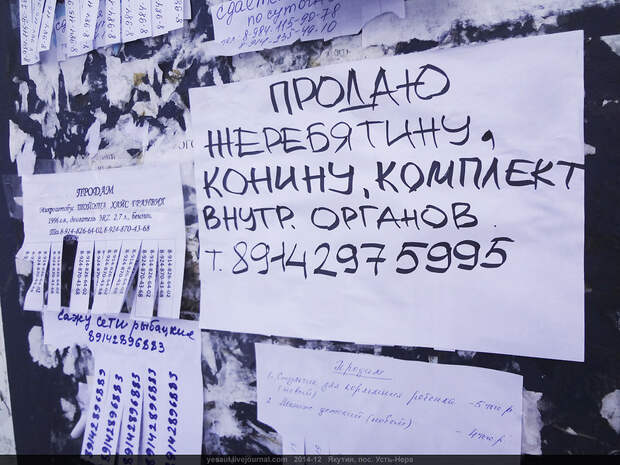 сдаёт
посуточ
тел. 8-984-115-90-78
ПРОДАЮ
ЖЕРЕБЯТИНУ,
КОНИНУ, КОМПЛЕКТ
ВНУТР. ОРГАНОВ.
Т. 89142975995
ПРОДАМ
Микроавтобус ТОЙОТА ХАЙС ГРАНВИЯ
1996 г.в., двигатель 3RZ. 2.7 л., Бензин.
Тел. 8-924-826-64-02, 8-924-870-43-68
8-924-826-64-02
8-924-870-43-68
Сажу сети рыбацкие
89142896883
89142896883
89142896883
89142896883
89142896883
Продам
1. Стульчик для кормления ребенка - 5 тыс. р
(новый)
2. детский (новый) - 4 тыс. р
yesaul.livejournal.com 2014-12 Якутия, пос. Усть-Нера